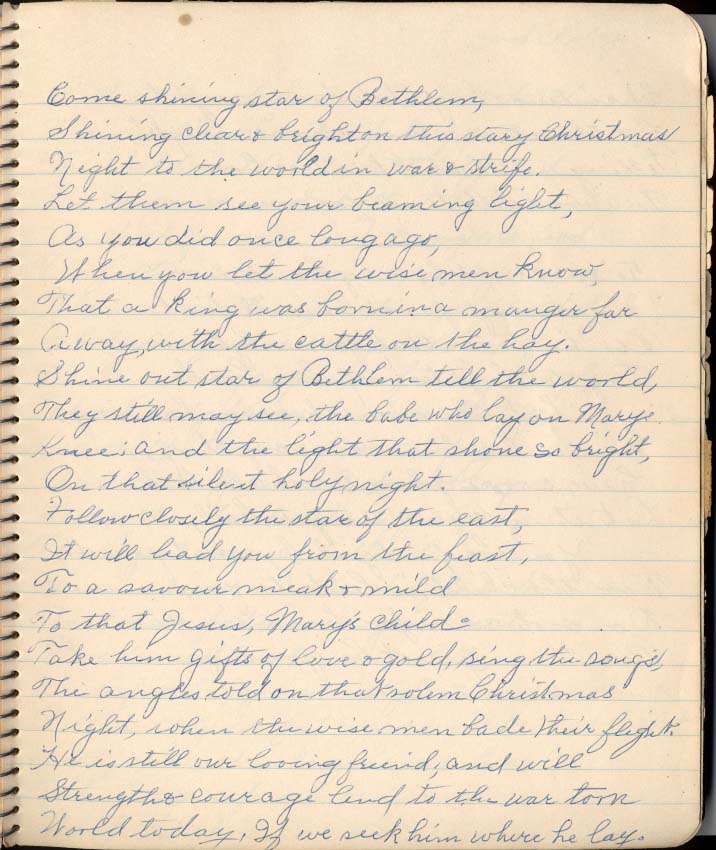 Come shining star of Bethlem,
Shining clear & bright on this stary Christmas
Night to the world in war & strife.
Let them see your beaming light,
As you did once long ago,
When you let the wise men know,
That a king was born in a manger far
Away, with the cattle on the hay.
Shine out star of Bethlem tell the world,
They still may see, the babe who lay on Marys
Knee; and the light that shone so bright,
On that silent holy night.
Follow closely the star of the east,
It will lead you from the feast,
To a savour meak & mild
To that Jesus, Mary's child.
Take him gifts of love & gold, sing the songs,
The angles told on that solem Christmas
Night, when the wise men bade their flight.
He is still our loving friend, and will
Strength & courage lend to the war torn
World today. If we seek him where he lay.